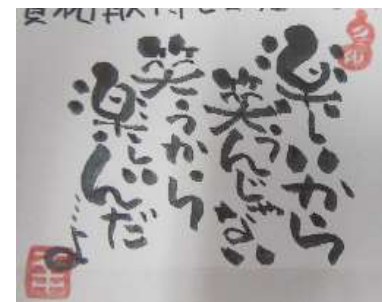 楽しいから
笑うんじゃない
笑うから
楽しいんだ
…よ